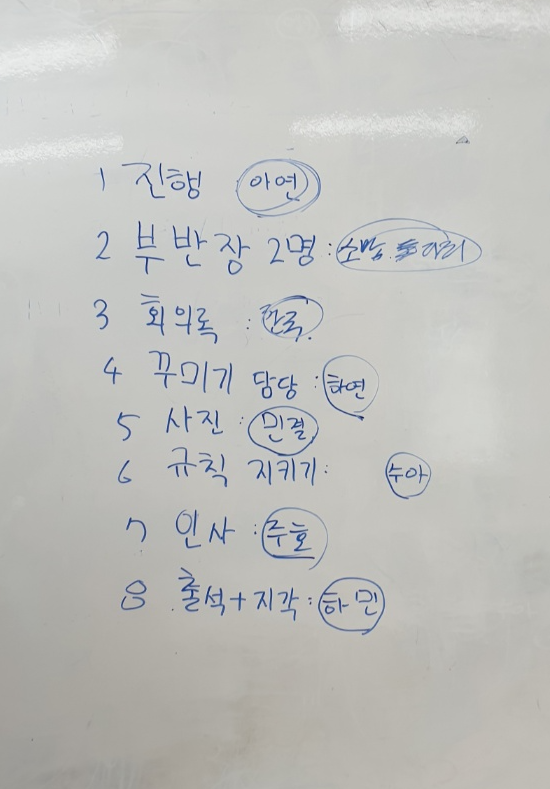 1 진행 아연
2 부반장 2명 :
3 회의록 :
4 꾸미기 담당 : 하연
5 사진 : 민결
6 규칙 지키기 : 수아
7 인사 : 주호
8 출석+지각 : 하민